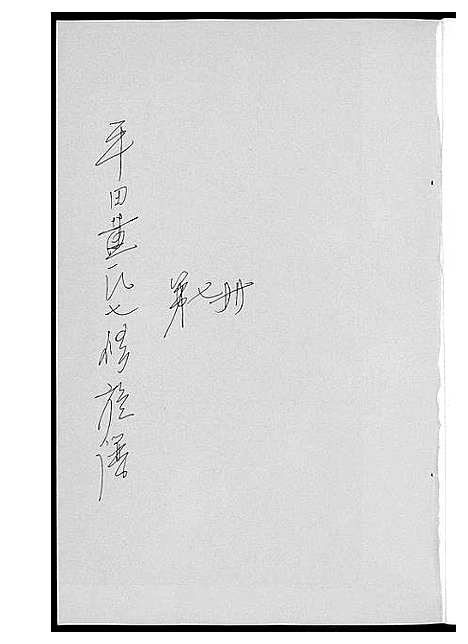 平田黄氏七修族谱
第七册